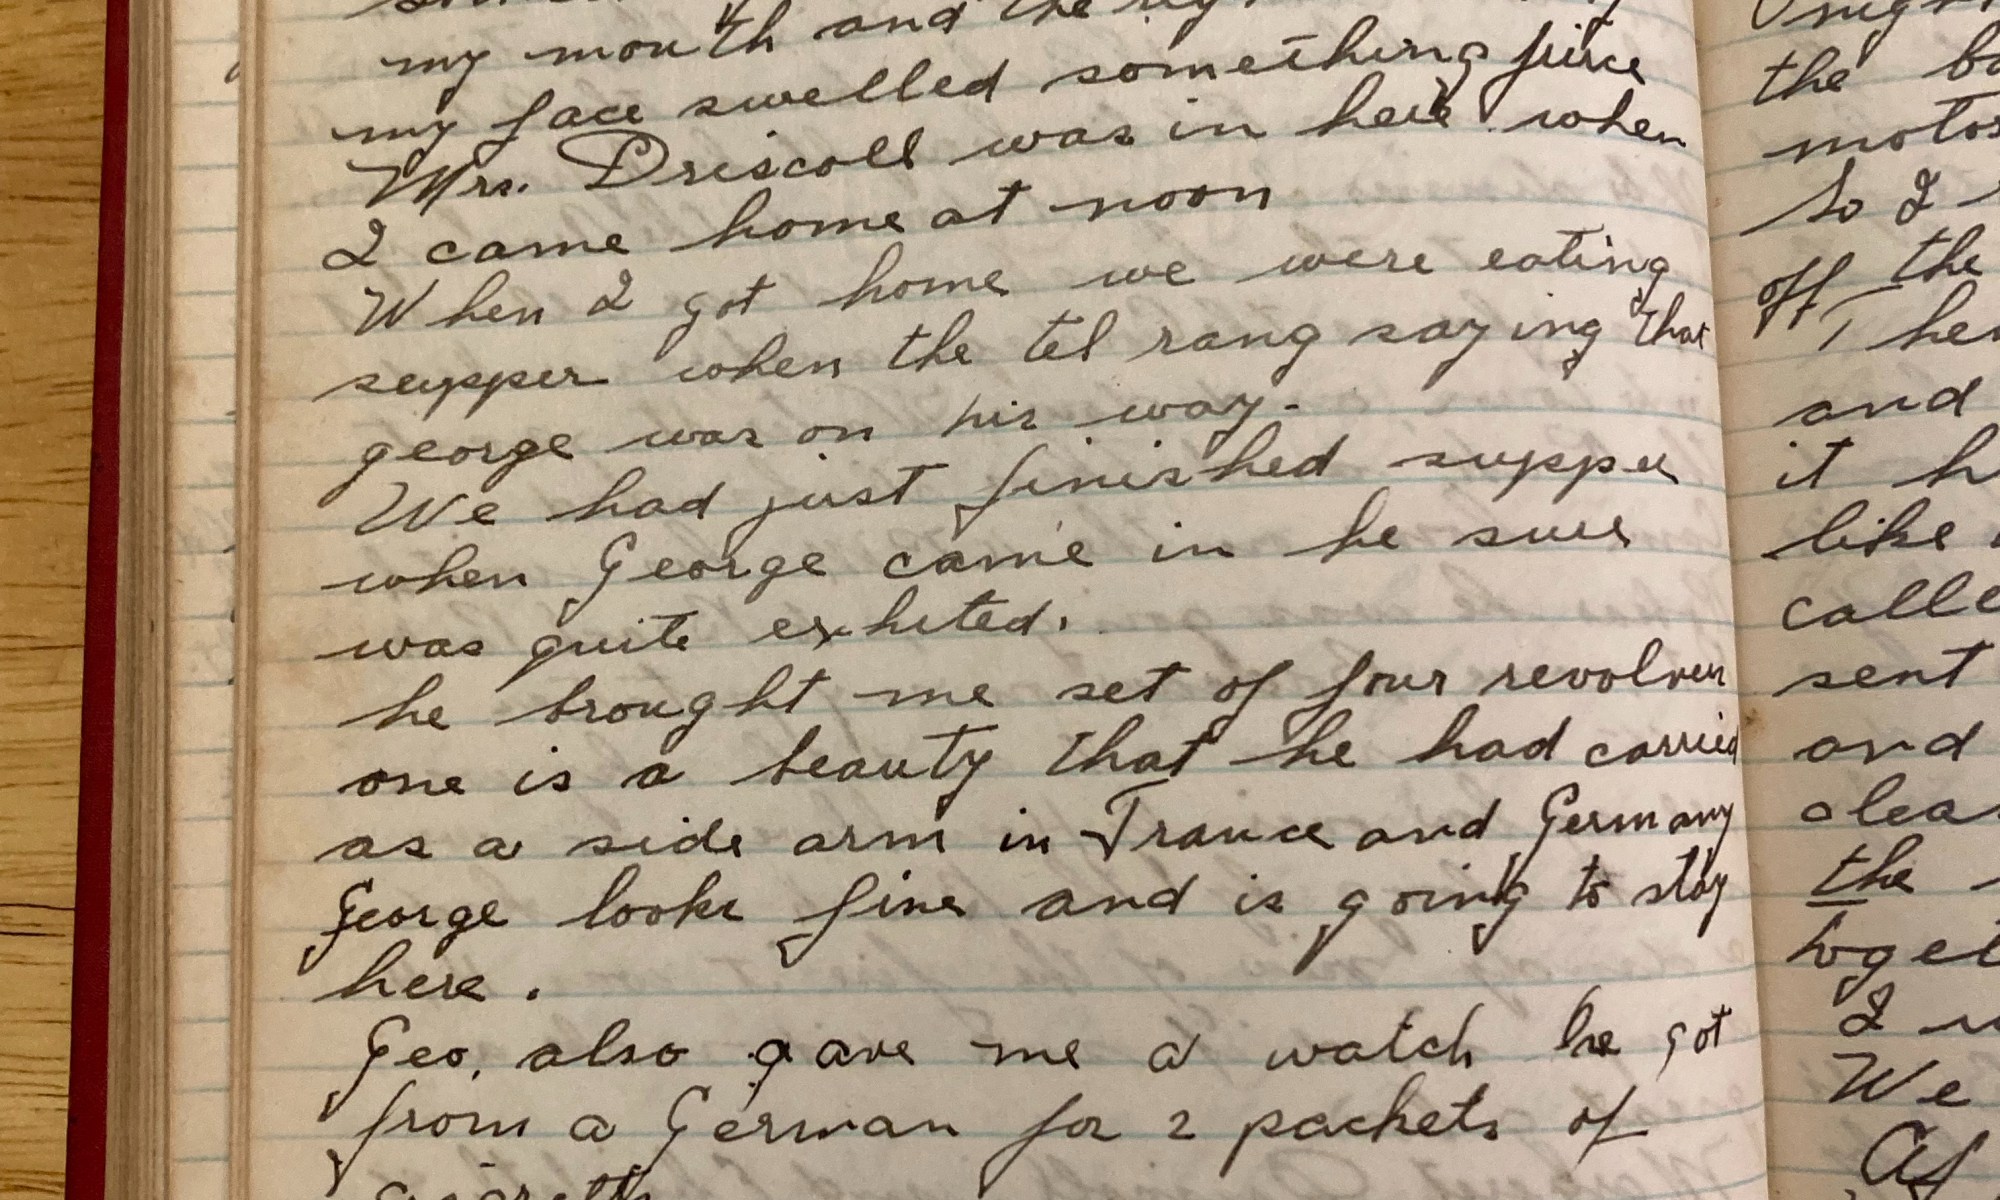 my mouth and the
my face swelled something firce
Mrs. Driscoll was in here when
I came home at noon
When I got home we were eating
supper when the tel rang saying that
george was on his way.
We had just finished supper
when George came in he sure
was quite exhited.
he brought me set of four revolvers
one is a beauty that he had carried
as a side arm in France and Germany
George looks fine and is going to stay
here.
Geo. also gave me a watch he got
from a German for 2 packets of
the
So I
off the
and
it
like
sent
and
the
I
We